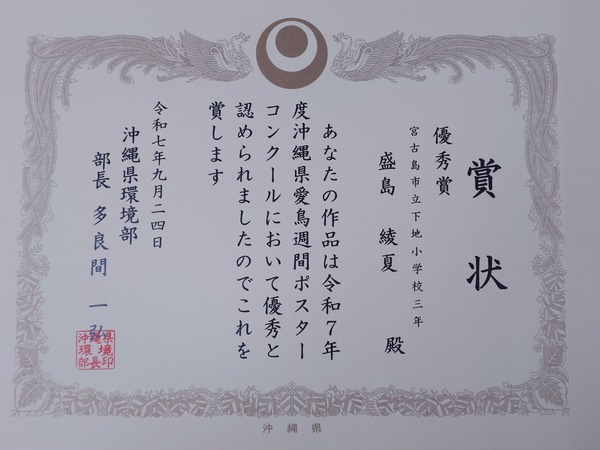 賞状
優秀賞
宮古島市立下地小学校三年
盛島 綾夏 殿
あなたの作品は令和7年
度沖縄県愛鳥週間ポスター
コンクールにおいて優秀と
認められましたのでこれを
賞します
令和七年九月二四日
沖縄県環境部
部長 多良間 一弘
沖縄県環境部長印
沖縄県